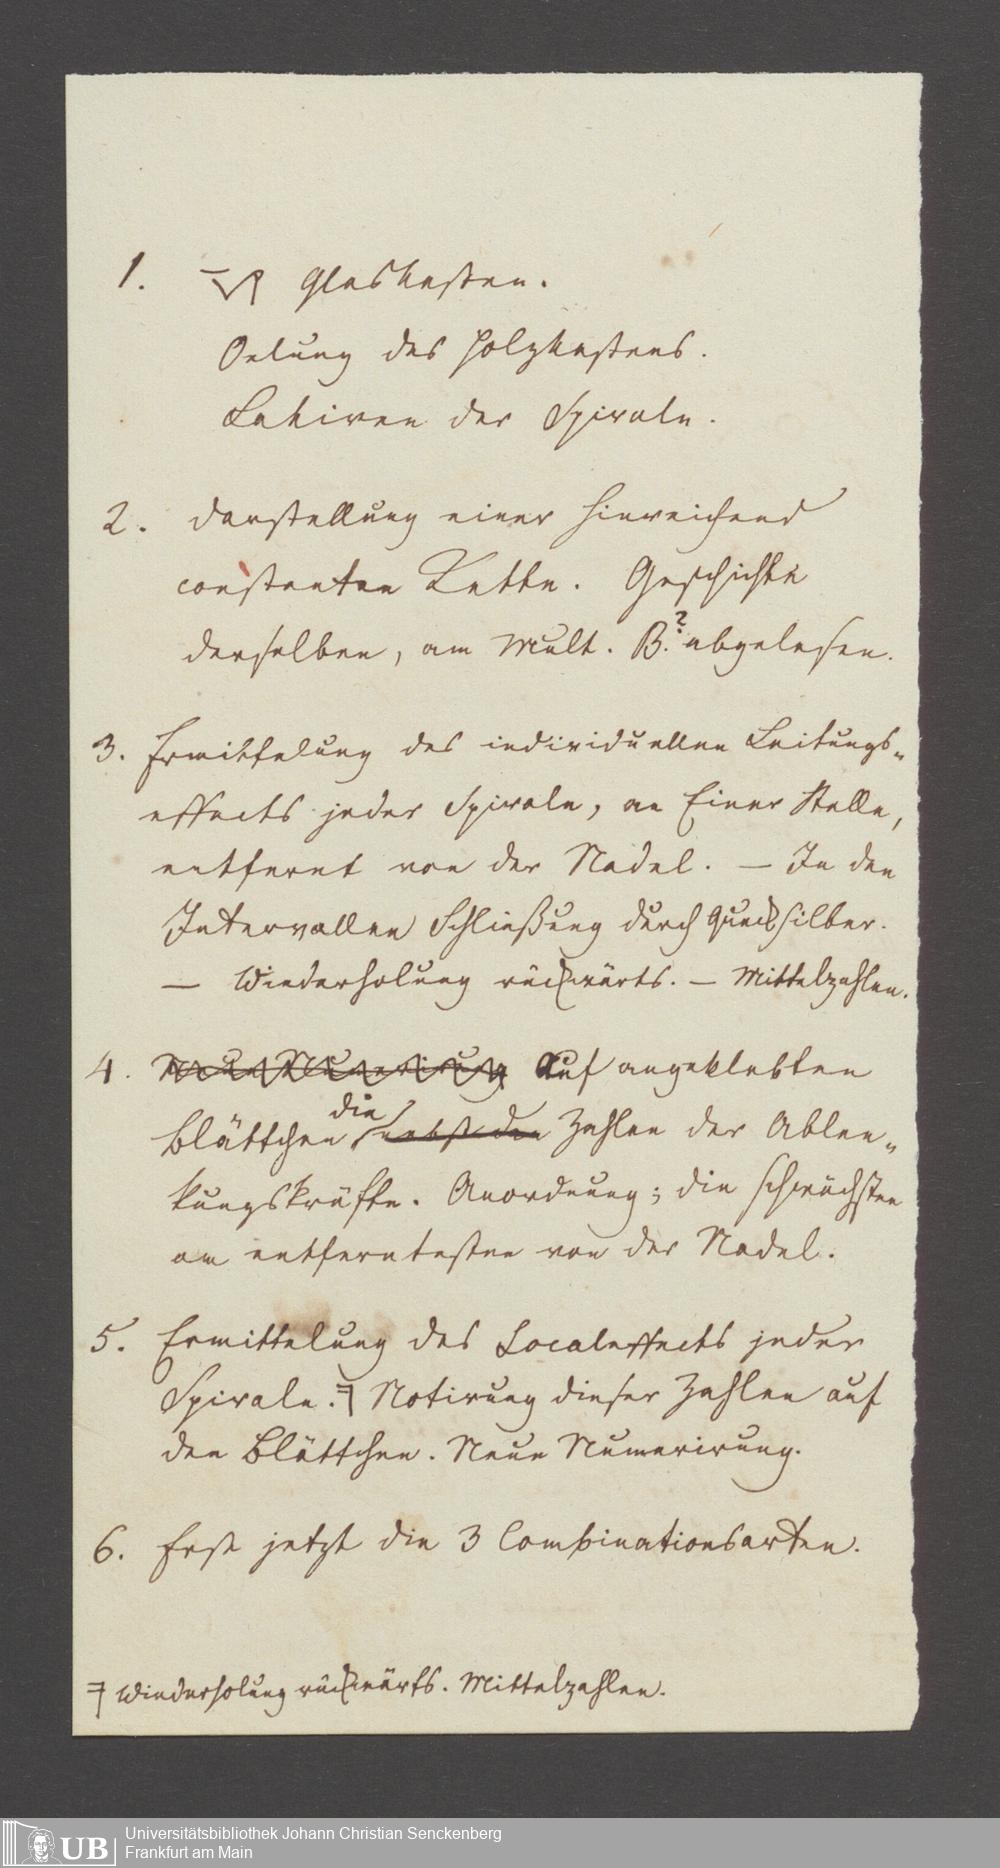 1. Glaskasten.
Oelung des Holzkastens.
Lakiren der Spirale.
2. Darstellung einer hinreichend
constanten Kette. Geschichte
derselben, am Mult. B.? abgelesen.
3. Ermittelung des individuellen Leitungs-
effects jeder Spirale, an Einer Stelle,
entfernt von der Nadel. — In den
Intervallen Schließung durch Quecksilber.
— Wiederholung rückwärts. — Mittelzahlen.
4. Neue Numerirung Auf angeklebten
Blättchen die nebst den Zahlen der Ablen-
kungskräfte. Anordnung; die schwächsten
am entferntesten von der Nadel.
5. Ermittelung des Localeffects jeder
Spirale. Notirung dieser Zahlen auf
den Blättchen. Neue Numerirung.
6. Erst jetzt die 3 Combinationsarten.
Wiederholung rückwärts. Mittelzahlen.
UB Universitätsbibliothek Johann Christian Senckenberg
Frankfurt am Main